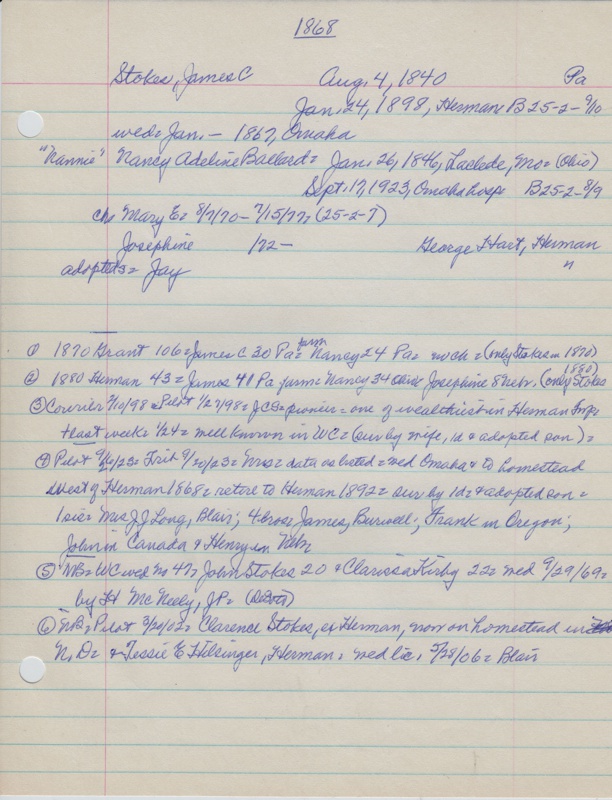 1868
Stokes, James C Aug. 4, 1840 Pa
Jan. 24, 1898, Herman B25-2-9/10
wed= Jan. - 1867, Omaha
"Nannie" Nancy Adeline Ballard= Jan. 26, 1846, Laclede, Mo= (Ohio)
Sept. 17, 1923, Omaha hosp B25-2-8/9
ch= Mary E= 8/7/70 - 7/15/77= (25-2-7)
Josephine 1/72 - George Hart, Herman
adopted s= Jay "
① 1870 Grant 106= James C 30 Pa= farm Nancy 24 Pa= no ch= (only Stokes in 1870)
② 1880 Herman 43= James 41 Pa farm= Nancy 34 Ohio= Josephine 8 Nebr. (only Stokes 1880)
③ Courier 2/10/98 & Pilot 1/27/98= JCS= pioneer= one of wealthiest in Herman
+ last week= 1/24= well known in WC= (sur by wife, 1d & adopted son)=
④ Pilot 9/26/23= Trib 9/20/23= Mrs= data as listed= wed Omaha & to homestead
west of Herman 1868= retire to Herman 1892= sur by 1d= & adopted son=
1 sis= Mrs J J Long, Blair; 4 bros= James, Burwell; Frank in Oregon;
John in Canada & Henry in Nebr
⑤ NB= WC wed no 47= John Stokes 20 & Clarissa Kirby 22= wed 9/29/69=
by H McNeely, JP= (DeSoto)
⑥ NB= Pilot 3/20/02= Clarence Stokes, ex Herman, now on homestead in
N. D= & Tessie E Hilsinger, Herman, wed lic, 5/28/06= Blair